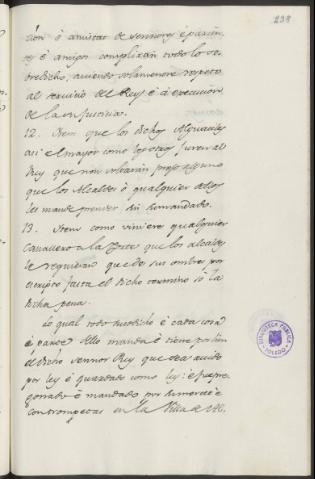 238
cion ó amistat de sennores é parien-
tes é amigos compliran todo lo so-
bredicho, aviendo solamente respeto
al servicio del Rey é á execucion
de la su justicia.
12. Item que los dichos Alguaciles
asi el mayor como los otros juren al
Rey que non soltarán preso alguno
que los Alcaldes ó qualquier dellos
les mande prender sin su mandado.
13. Item como viniere qualquier
Cavallero a la que los alcaldes
le requieran que de sus ombres por
escripto fasta el dicho termino só la
dicha pena.
Lo qual todo susodicho é cada cosa
é parte dello manda é tiene por bien
el dicho sennor Rey que sea avido
por ley é guardado como ley: é fue pre-
gonado é mandado por
con trompetas en la Villa de
BIBLIOTECA PUBLICA
TOLEDO